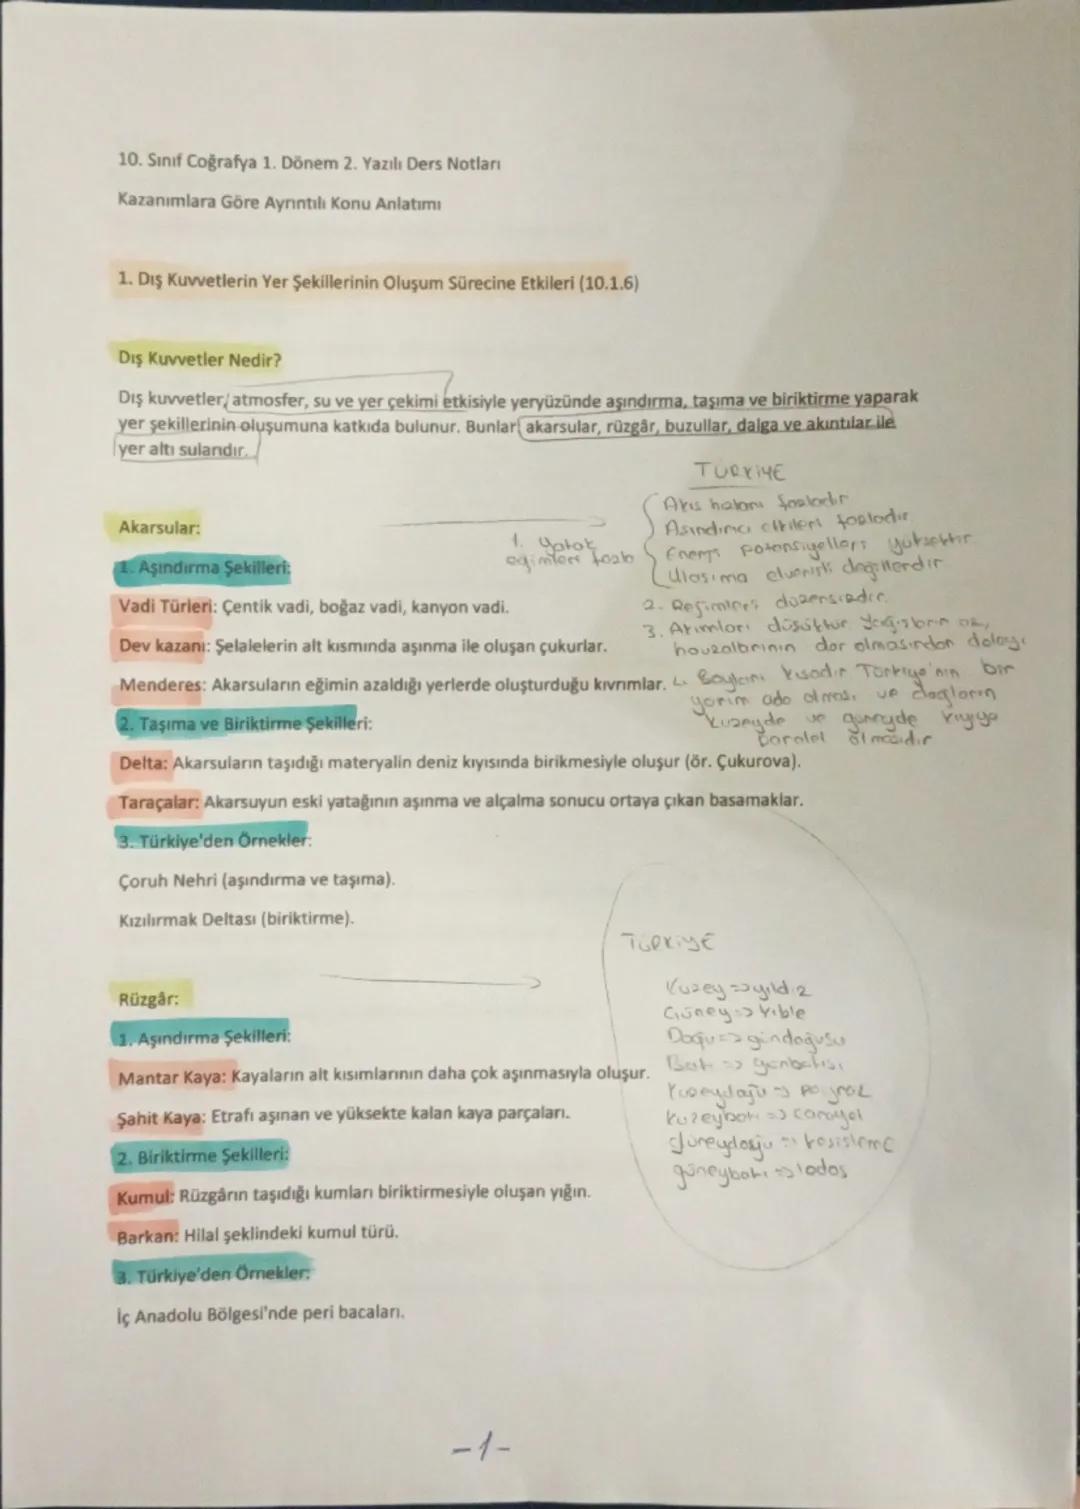 10. Sınıf Coğrafya 1. Dönem 2. Yazılı Ders Notları
Kazanımlara Göre Ayrıntılı Konu Anlatımı
1. Dış Kuvvetlerin Yer Şekillerinin Oluşum Sürecine Etkileri (10.1.6)
Dış Kuvvetler Nedir?
Dış kuvvetler, atmosfer, su ve yer çekimi etkisiyle yeryüzünde aşındırma, taşıma ve biriktirme yaparak
yer şekillerinin oluşumuna katkıda bulunur. Bunlar akarsular, rüzgâr, buzullar, dalga ve akıntılar ile
yer altı sularıdır.
Akarsular:
1. Aşındırma Şekilleri:
Vadi Türleri: Çentik vadi, boğaz vadi, kanyon vadi.
Dev kazanı: Şelalelerin alt kısmında aşınma ile oluşan çukurlar.
Menderes: Akarsuların eğimin azaldığı yerlerde oluşturduğu kıvrımlar.
2. Taşıma ve Biriktirme Şekilleri:
Delta: Akarsuların taşıdığı materyalin deniz kıyısında birikmesiyle oluşur (ör. Çukurova).
Taraçalar: Akarsuyun eski yatağının aşınma ve alçalma sonucu ortaya çıkan basamaklar.
3. Türkiye'den Örnekler:
Çoruh Nehri (aşındırma ve taşıma).
Kızılırmak Deltası (biriktirme).
TÜRKİYE
1. Yatak
eğimleri fazla
Akış hızları fazladır
Aşındırıcı etkileri fazladır
Enerji potansiyelleri yüksektir
Ulaşıma elverişli değillerdir
2. Rejimleri düzensizdir.
3. Akımları düşüktür. Yağışların az,
havzalarının dar olmasından dolayı
4. Boyları kısadır Türkiye'nin bir
yarım ada olması ve dağların
kuzeyde ve güneyde kıyıya
paralel olmasıdır
Rüzgâr:
1. Aşındırma Şekilleri:
Mantar Kaya: Kayaların alt kısımlarının daha çok aşınmasıyla oluşur.
Şahit Kaya: Etrafı aşınan ve yüksekte kalan kaya parçaları.
2. Biriktirme Şekilleri:
Kumul: Rüzgârın taşıdığı kumları biriktirmesiyle oluşan yığın.
Barkan: Hilal şeklindeki kumul türü.
3. Türkiye'den Örnekler:
İç Anadolu Bölgesi'nde peri bacaları.
TÜRKİYE
Kuzey => yıldız
Güney => kıble
Doğu => gündoğusu
Batı => günbatısı
Kuzeydoğu => poyraz
Kuzeybatı => karayel
güneydoğu => keşişleme
güneybatı => lodos
-1-